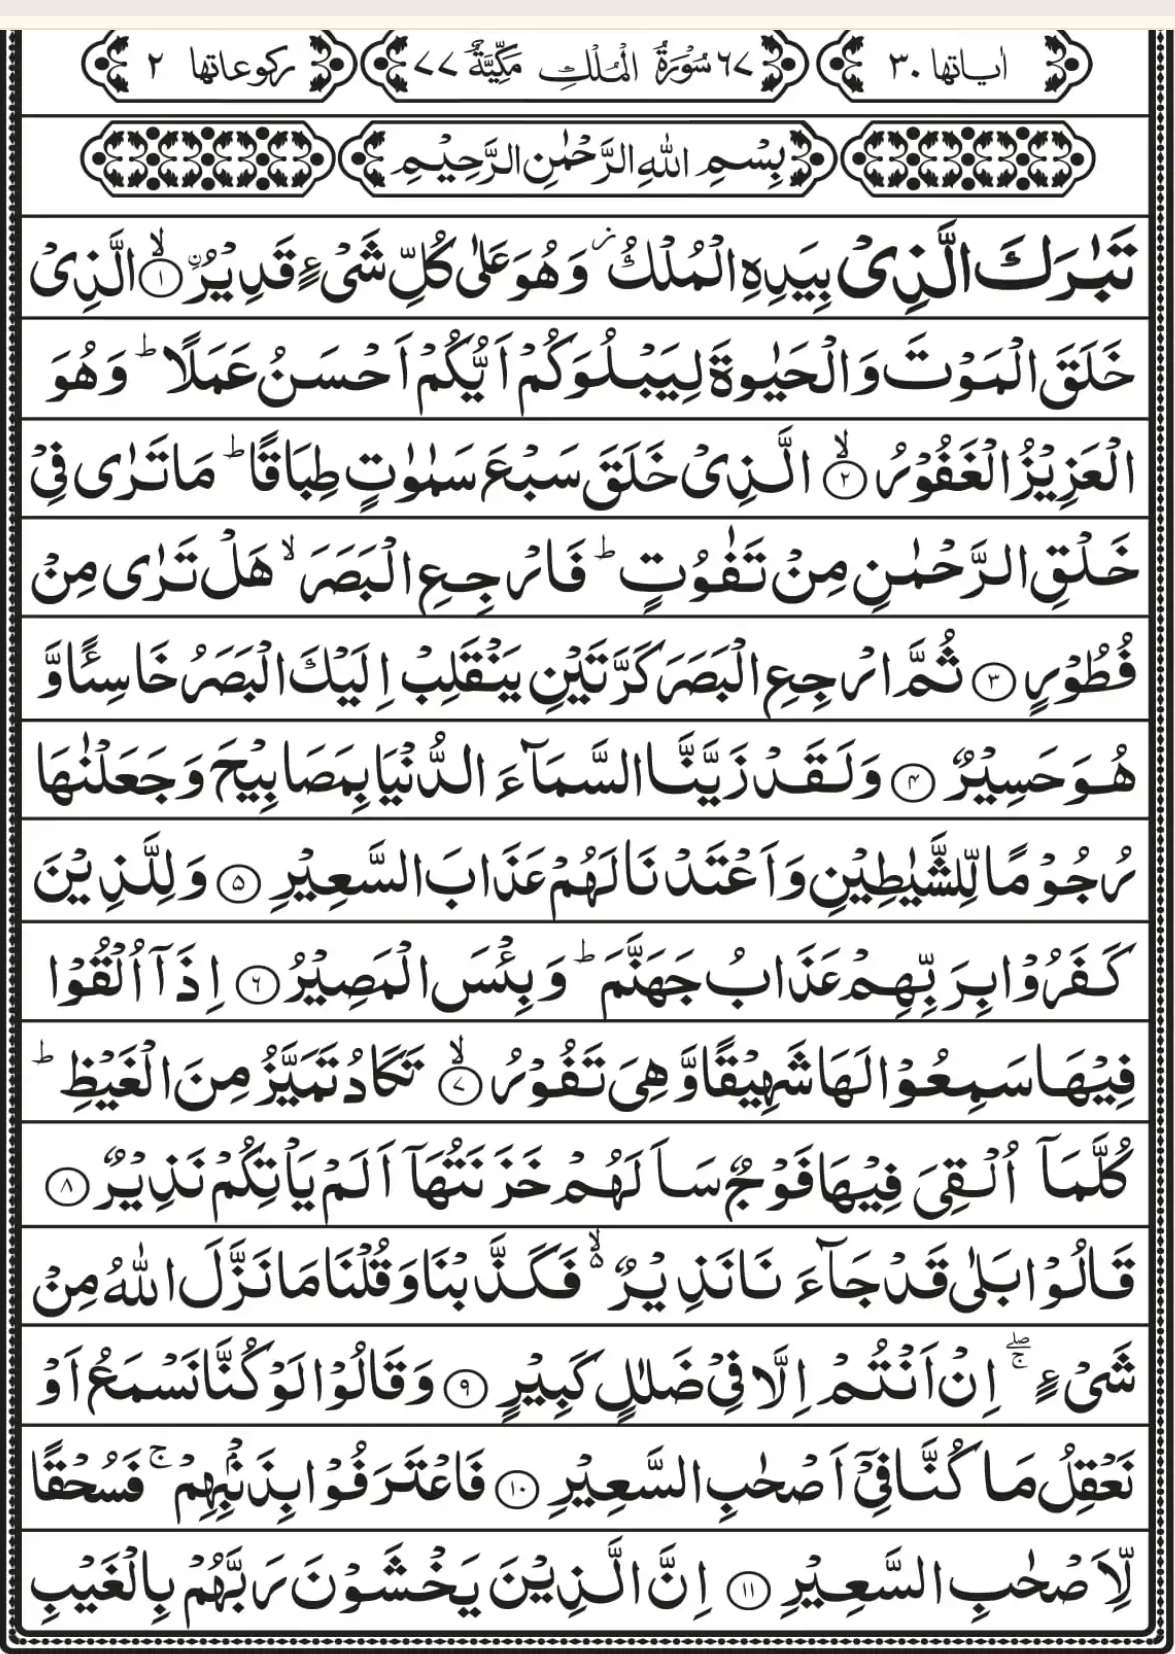 اٰیاتها ٣٠ ٦٧ سُوْرَةُ الْمُلْكِ مَكِّیَّةٌ ٧٧ ركوعاتها ٢
بِسْمِ اللّٰهِ الرَّحْمٰنِ الرَّحِیْمِ
تَبٰرَكَ الَّذِیْ بِیَدِهِ الْمُلْكُ ز وَ هُوَ عَلٰی كُلِّ شَیْءٍ قَدِیْرُ ۨۙ ﴿١﴾ الَّذِیْ
خَلَقَ الْمَوْتَ وَ الْحَیٰوةَ لِیَبْلُوَكُمْ اَیُّكُمْ اَحْسَنُ عَمَلًا ؕ وَ هُوَ
الْعَزِیْزُ الْغَفُوْرُ ۙ﴿٢﴾ الَّذِیْ خَلَقَ سَبْعَ سَمٰوٰتٍ طِبَاقًا ؕ مَا تَرٰی فِیْ
خَلْقِ الرَّحْمٰنِ مِنْ تَفٰوُتٍ ؕ فَارْجِعِ الْبَصَرَ ۙ هَلْ تَرٰی مِنْ
فُطُوْرٍ ﴿٣﴾ ثُمَّ ارْجِعِ الْبَصَرَ كَرَّتَیْنِ یَنْقَلِبْ اِلَیْكَ الْبَصَرُ خَاسِئًا وَّ
هُوَ حَسِیْرٌ ﴿۴﴾ وَ لَقَدْ زَیَّنَّا السَّمَآءَ الدُّنْیَا بِمَصَابِیْحَ وَ جَعَلْنٰهَا
رُجُوْمًا لِّلشَّیٰطِیْنِ وَ اَعْتَدْنَا لَهُمْ عَذَابَ السَّعِیْرِ ﴿۵﴾ وَ لِلَّذِیْنَ
كَفَرُوْا بِرَبِّهِمْ عَذَابُ جَهَنَّمَ ؕ وَ بِئْسَ الْمَصِیْرُ ﴿۶﴾ اِذَاۤ اُلْقُوْا
فِیْهَا سَمِعُوْا لَهَا شَهِیْقًا وَّ هِیَ تَفُوْرُ ۙ﴿٧﴾ تَكَادُ تَمَیَّزُ مِنَ الْغَیْظِ ؕ
كُلَّمَاۤ اُلْقِیَ فِیْهَا فَوْجٌ سَاَلَهُمْ خَزَنَتُهَاۤ اَلَمْ یَاْتِكُمْ نَذِیْرٌ ﴿٨﴾
قَالُوْا بَلٰی قَدْ جَآءَنَا نَذِیْرٌ ۙ۬ فَكَذَّبْنَا وَ قُلْنَا مَا نَزَّلَ اللّٰهُ مِنْ
شَیْءٍ ۚۖ اِنْ اَنْتُمْ اِلَّا فِیْ ضَلٰلٍ كَبِیْرٍ ﴿٩﴾ وَ قَالُوْا لَوْ كُنَّا نَسْمَعُ اَوْ
نَعْقِلُ مَا كُنَّا فِیْۤ اَصْحٰبِ السَّعِیْرِ ﴿١٠﴾ فَاعْتَرَفُوْا بِذَنْۢبِهِمْ ۚ فَسُحْقًا
لِّاَصْحٰبِ السَّعِیْرِ ﴿١١﴾ اِنَّ الَّذِیْنَ یَخْشَوْنَ رَبَّهُمْ بِالْغَیْبِ